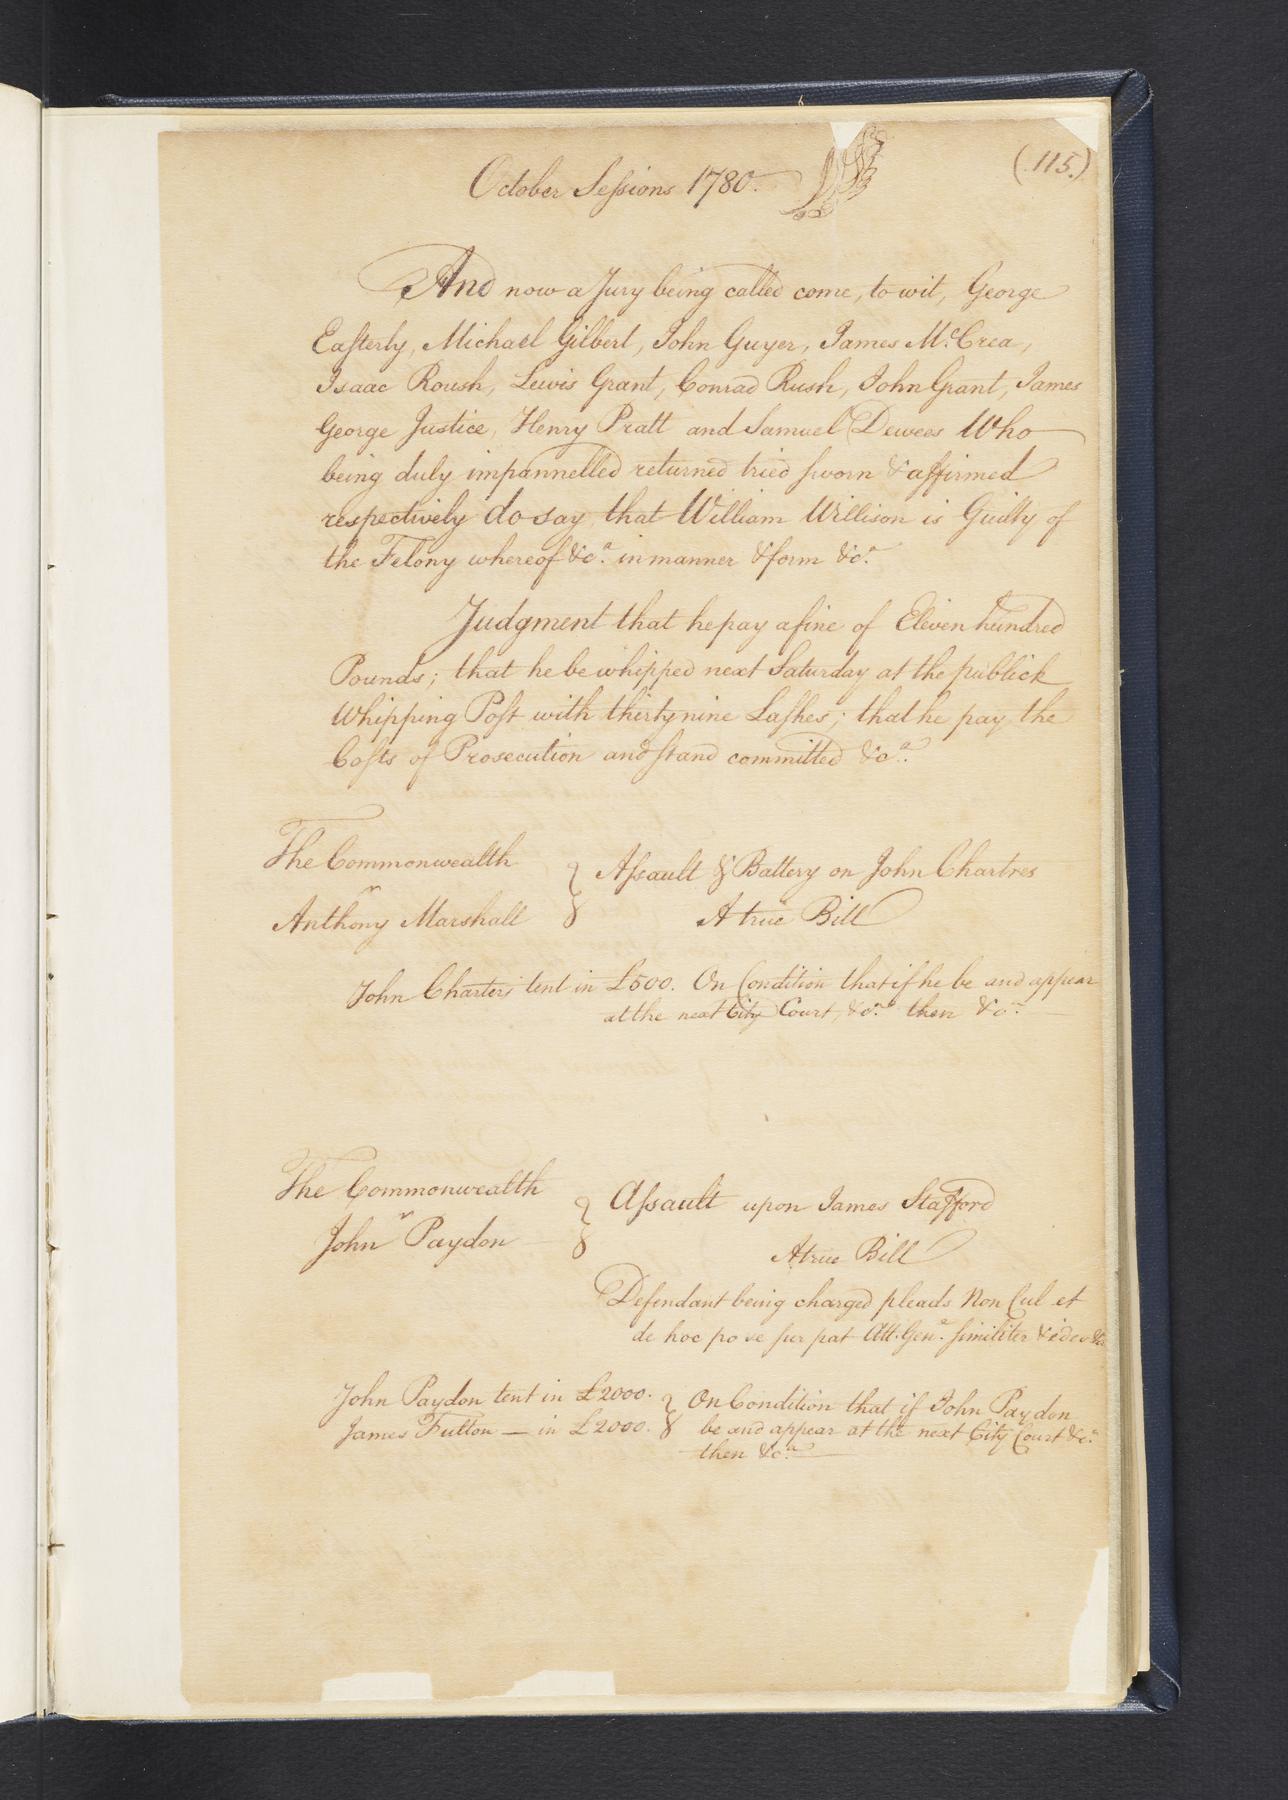 October Sessions 1780.
(115.)
And now a Jury being called come, to wit, George
Easterly, Michael Gilbert, John Guyer, James McCrea,
Isaac Roush, Lewis Grant, Conrad Rush, John Grant, James
George Justice, Henry Pratt and Samuel Dewees Who
being duly impannelled returned tried sworn & affirmed
respectively do say that William Willison is Guilty of
the Felony whereof &ca. in manner & form &ca.
Judgment that he pay a fine of Eleven hundred
Pounds; that he be whipped next Saturday at the publick
Whipping Post with thirty nine Lashes; that he pay the
Costs of Prosecution and stand committed &ca.
The Commonwealth
v
Anthony Marshall
Assault & Battery on John Chartres
A true Bill
John Charters tent in £500. On Condition that if he be and appear
at the next City Court, &ca. then &ca.
The Commonwealth
v
John Paydon
Assault upon James Stafford
A true Bill
Defendant being charged pleads Non Cul et
de hoc po se sur pat Att. Gen. similiter & ideo &c
John Paydon tent in £2000.
James Fulton — in £2000.
On Condition that if John Paydon
be and appear at the next City Court &ca.
then &ca.